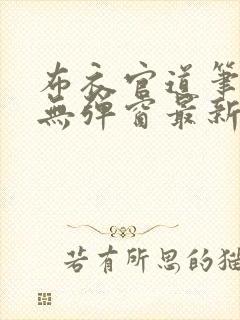 布衣官道筆
無彈窗最新
若有所思的猫